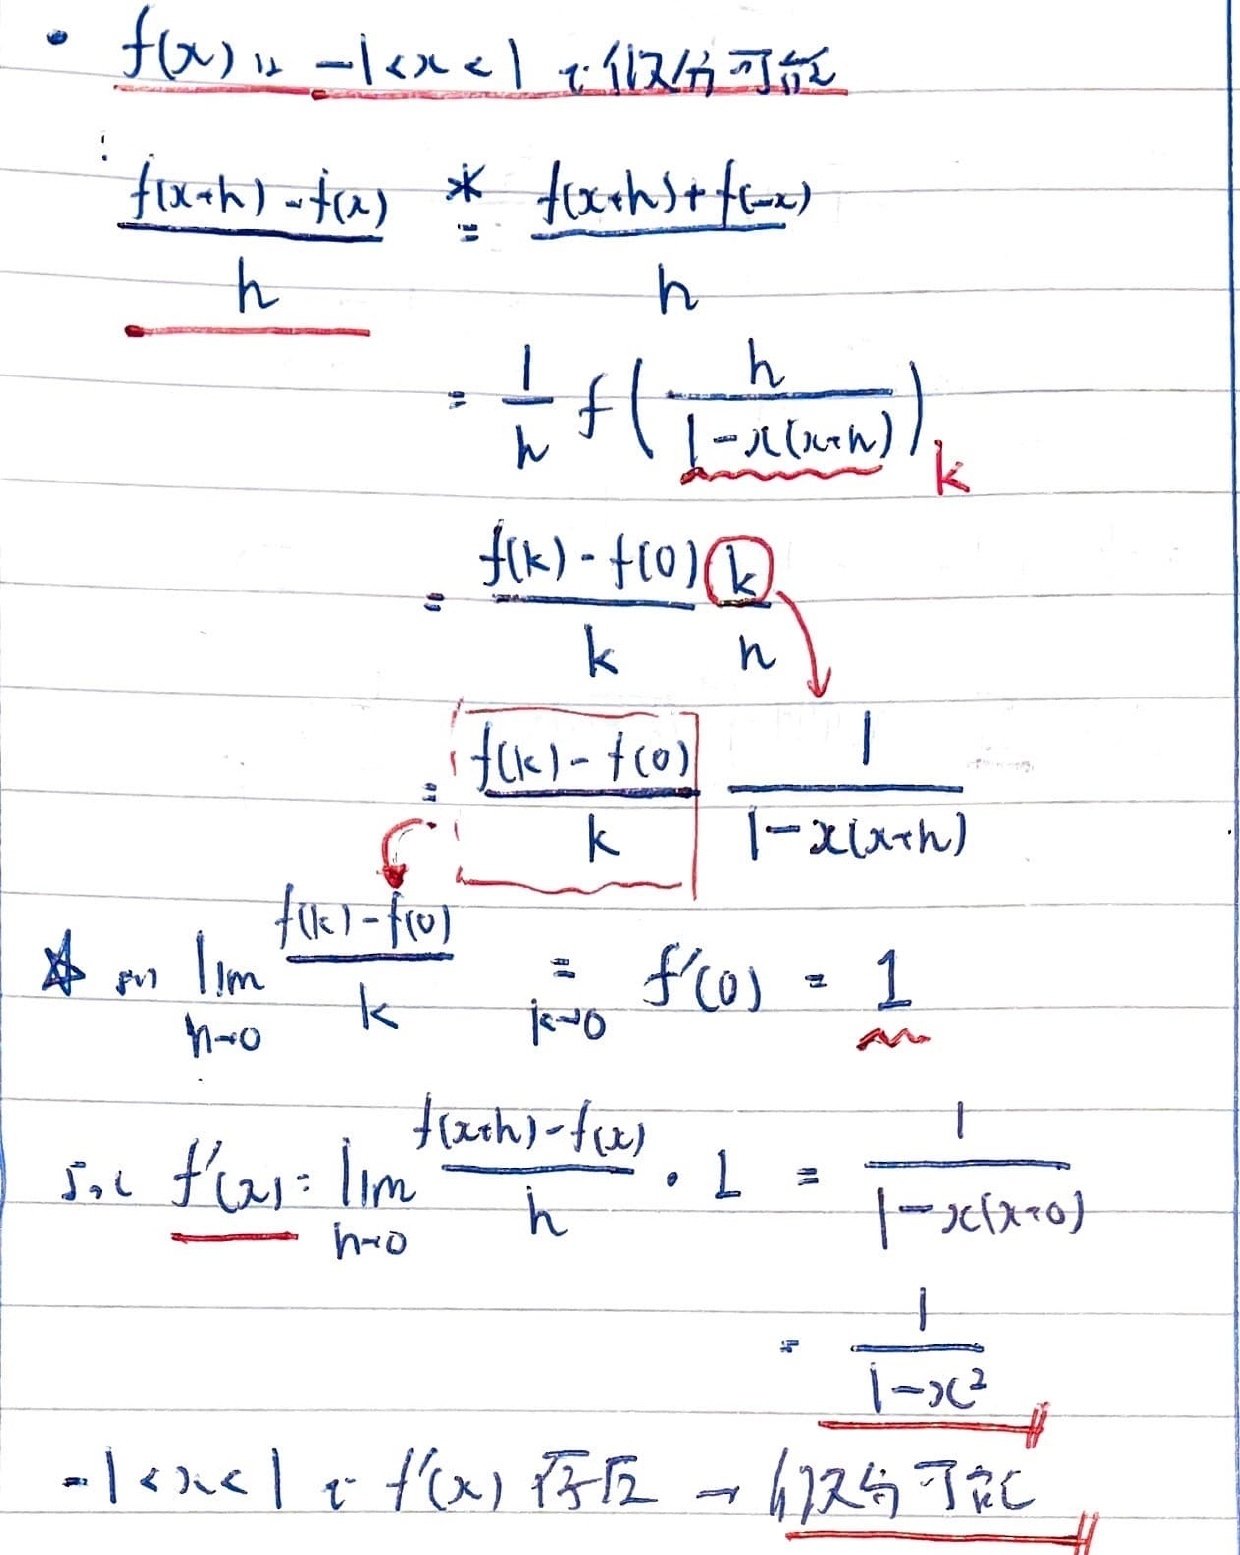 • f(x) は -1<x<1 で微分可能
∵
(f(x+h)-f(x))/h *= (f(x+h)+f(-x))/h
= 1/h f(h/(1-x(x+h))) k
= (f(k)-f(0))/k k/h
= (f(k)-f(0))/k 1/(1-x(x+h))
☆ より lim h→0 (f(k)-f(0))/k = k→0 f'(0) = 1
よって f'(x) = lim h→0 (f(x+h)-f(x))/h · 1 = 1/(1-x(x+0))
= 1/(1-x²)
-1<x<1 で f'(x) 存在 → 微分可能